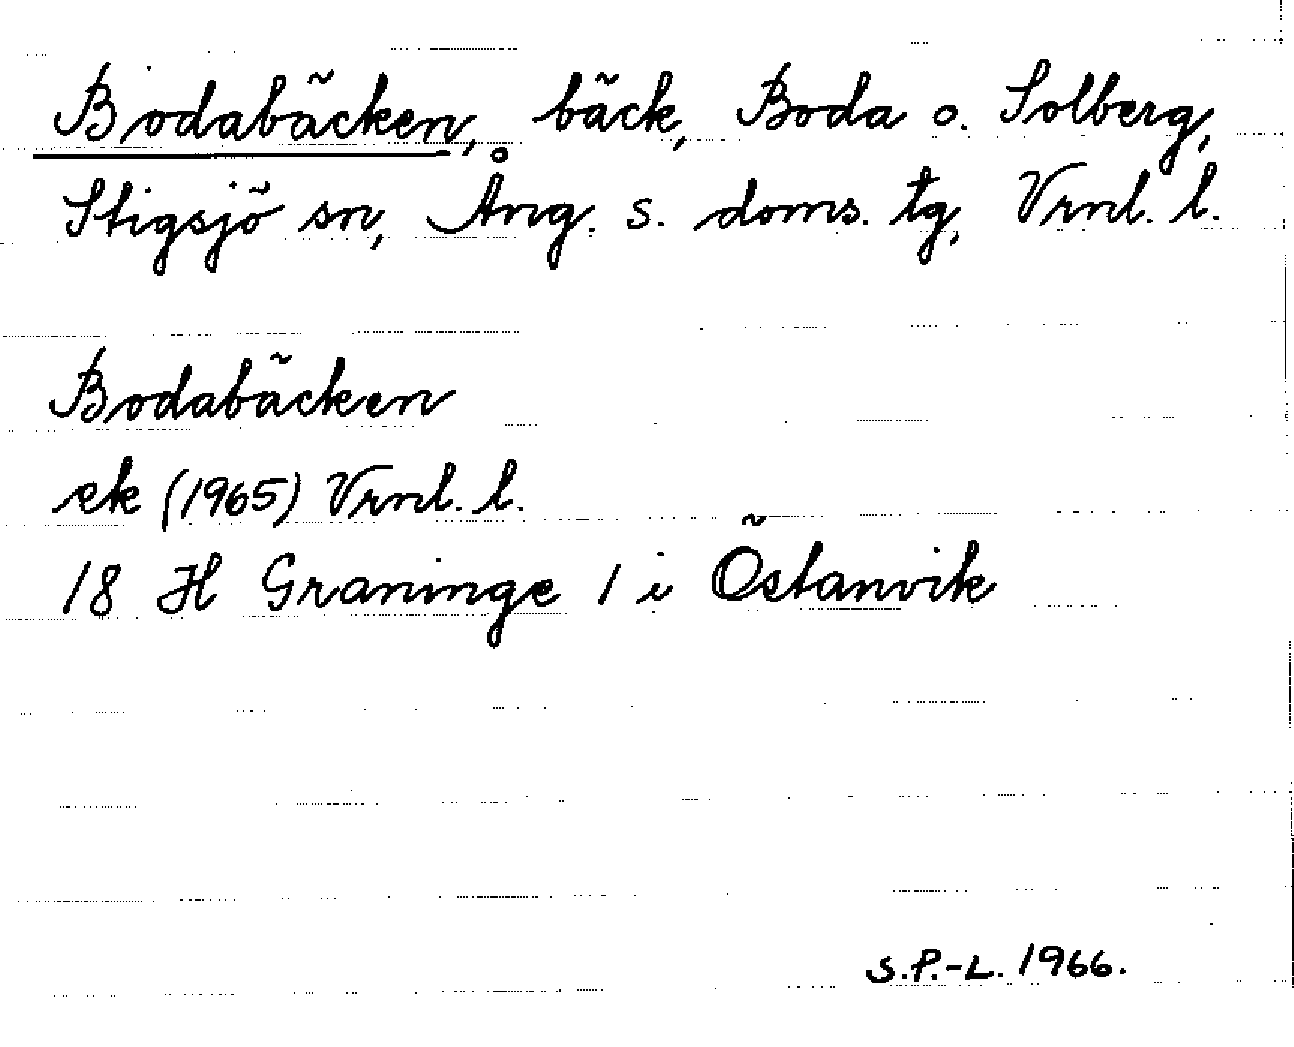 Bodabäcken, bäck, Boda o. Solberg,
Stigsjö sn, Ång. s. doms. tg, Vrnl. l.
Bodabäcken
ek (1965) Vrnl. l.
18 H Graninge 1 i Östanvik
S.P.-L. 1966.